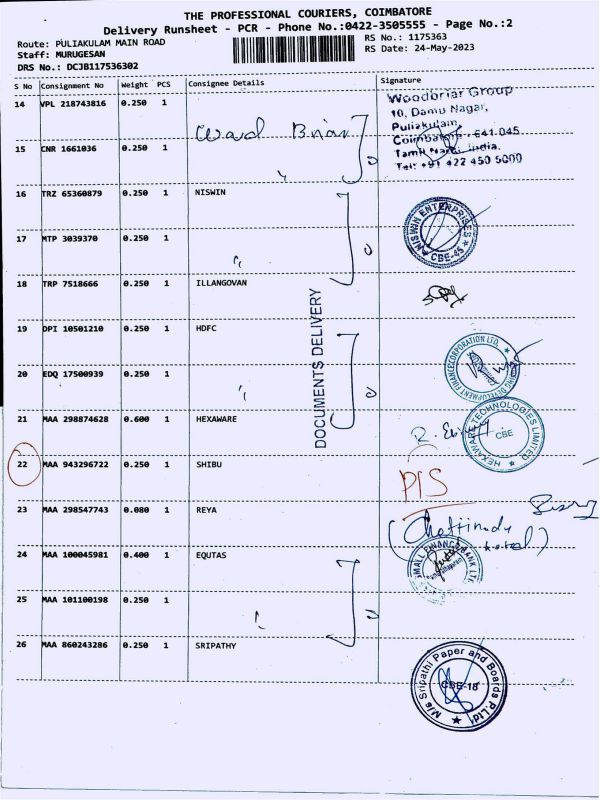 THE PROFESSIONAL COURIERS, COIMBATORE
Delivery Runsheet - PCR - Phone No.:0422-3505555 - Page No.:2
Route: PULIAKULAM MAIN ROAD
RS No.: 1175363
Staff: MURUGESAN
RS Date: 24-May-2023
DRS No.: DCJB117536302
S No Consignment No Weight PCS Consignee Details Signature
14 VPL 218743816 0.250 1
Woodbriar Group
10, Damu Nagar,
Puliakulam,
Coimbatore - 641 045
Tamil Nadu, India.
Tel: +91 422 450 5000
Ward Briar
15 CNR 1661036 0.250 1
16 TRZ 65360879 0.250 1 NISWIN
NISWIN ENTERPRISES
CBE-45
17 MTP 3039370 0.250 1
18 TRP 7518666 0.250 1 ILLANGOVAN
DOCUMENTS DELIVERY
19 DPI 10501210 0.250 1 HDFC
20 EDQ 17500939 0.250 1
21 MAA 298874628 0.600 1 HEXAWARE
HEXAWARE TECHNOLOGIES LIMITED
CBE
22 MAA 943296722 0.250 1 SHIBU
PIS
23 MAA 298547743 0.080 1 REYA
(Chettinadu
hotel)
24 MAA 100045981 0.400 1 EQUTAS
SMALL FINANCE BANK LTD
25 MAA 101100198 0.250 1
26 MAA 860243286 0.250 1 SRIPATHY
M/s Sripathi Paper and Boards P.Ltd
CBE-18